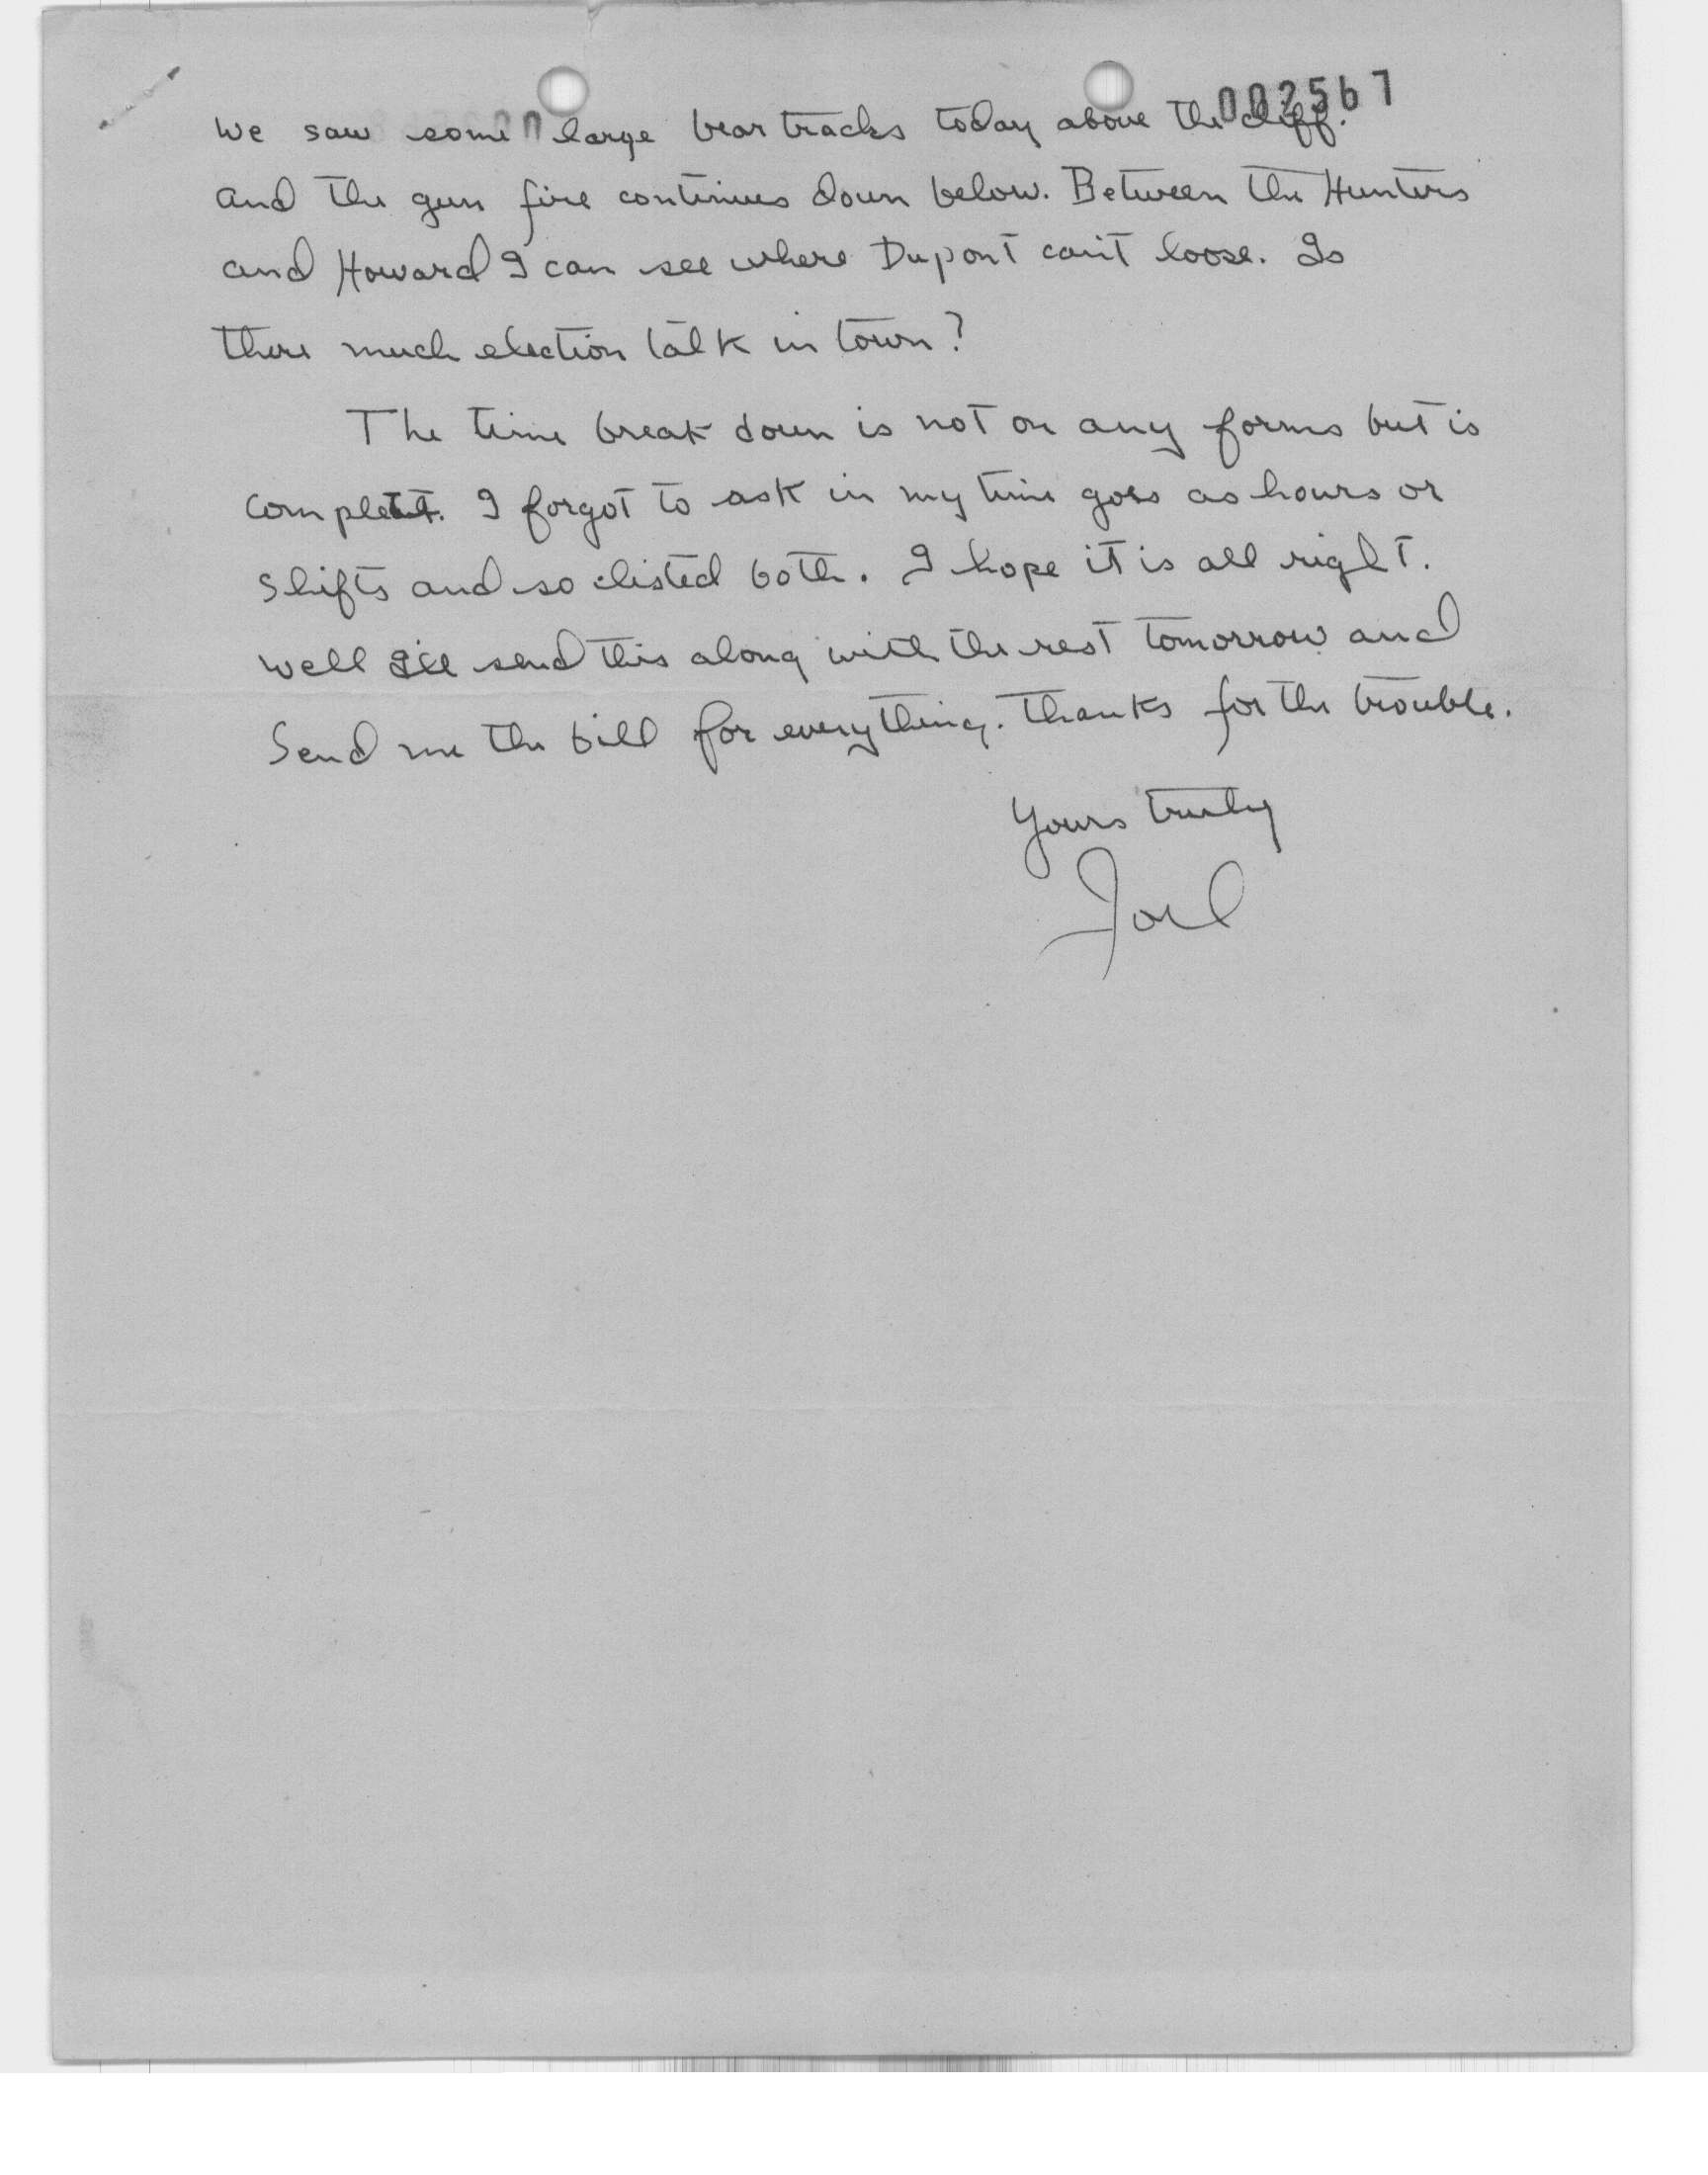 002567
We saw some large bear tracks today above the cliff.
and the gun fire continues down below. Between the Hunters
and Howard I can see where Dupont can't loose. Is
there much election talk in town?
The time break down is not on any forms but is
complete. I forgot to ask in my time goes as hours or
shifts and so listed both. I hope it is all right.
Well I'll send this along with the rest tomorrow and
Send me the bill for everything. Thanks for the trouble.
Yours truly
Joel